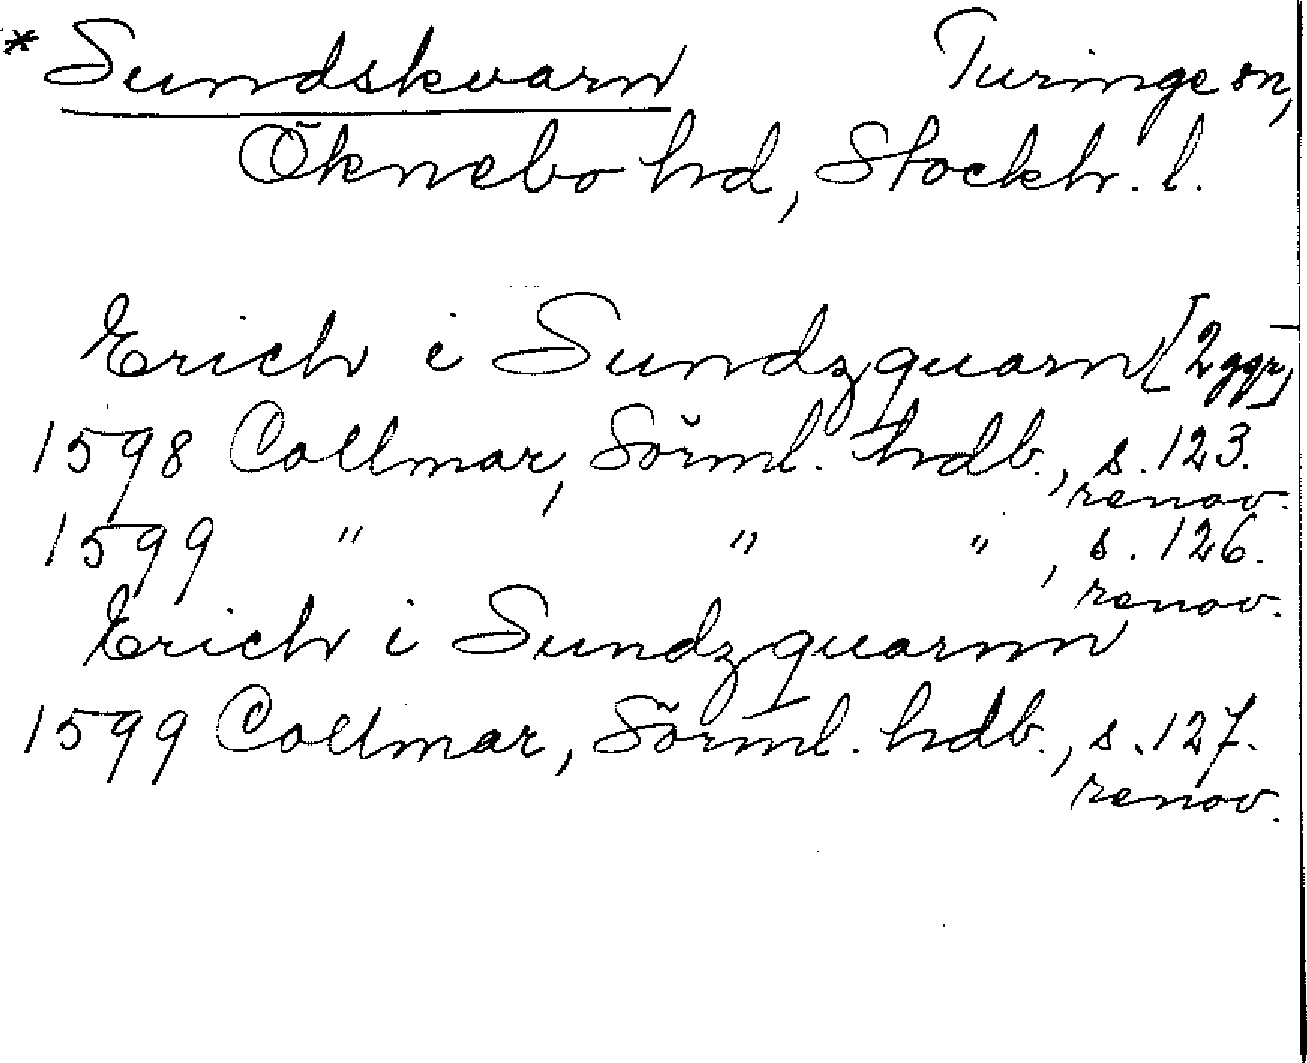 * Sundskvarn Turinge sn,
Öknebo hd, Stockh. l.
Erich i Sundzquarn [2 ggr]
1598 Collmar, Sörml. hdb., s. 123.
renov.
1599 " " " , s. 126.
renov.
Erich i Sundzquarnn
1599 Collmar, Sörml. hdb., s. 127.
renov.